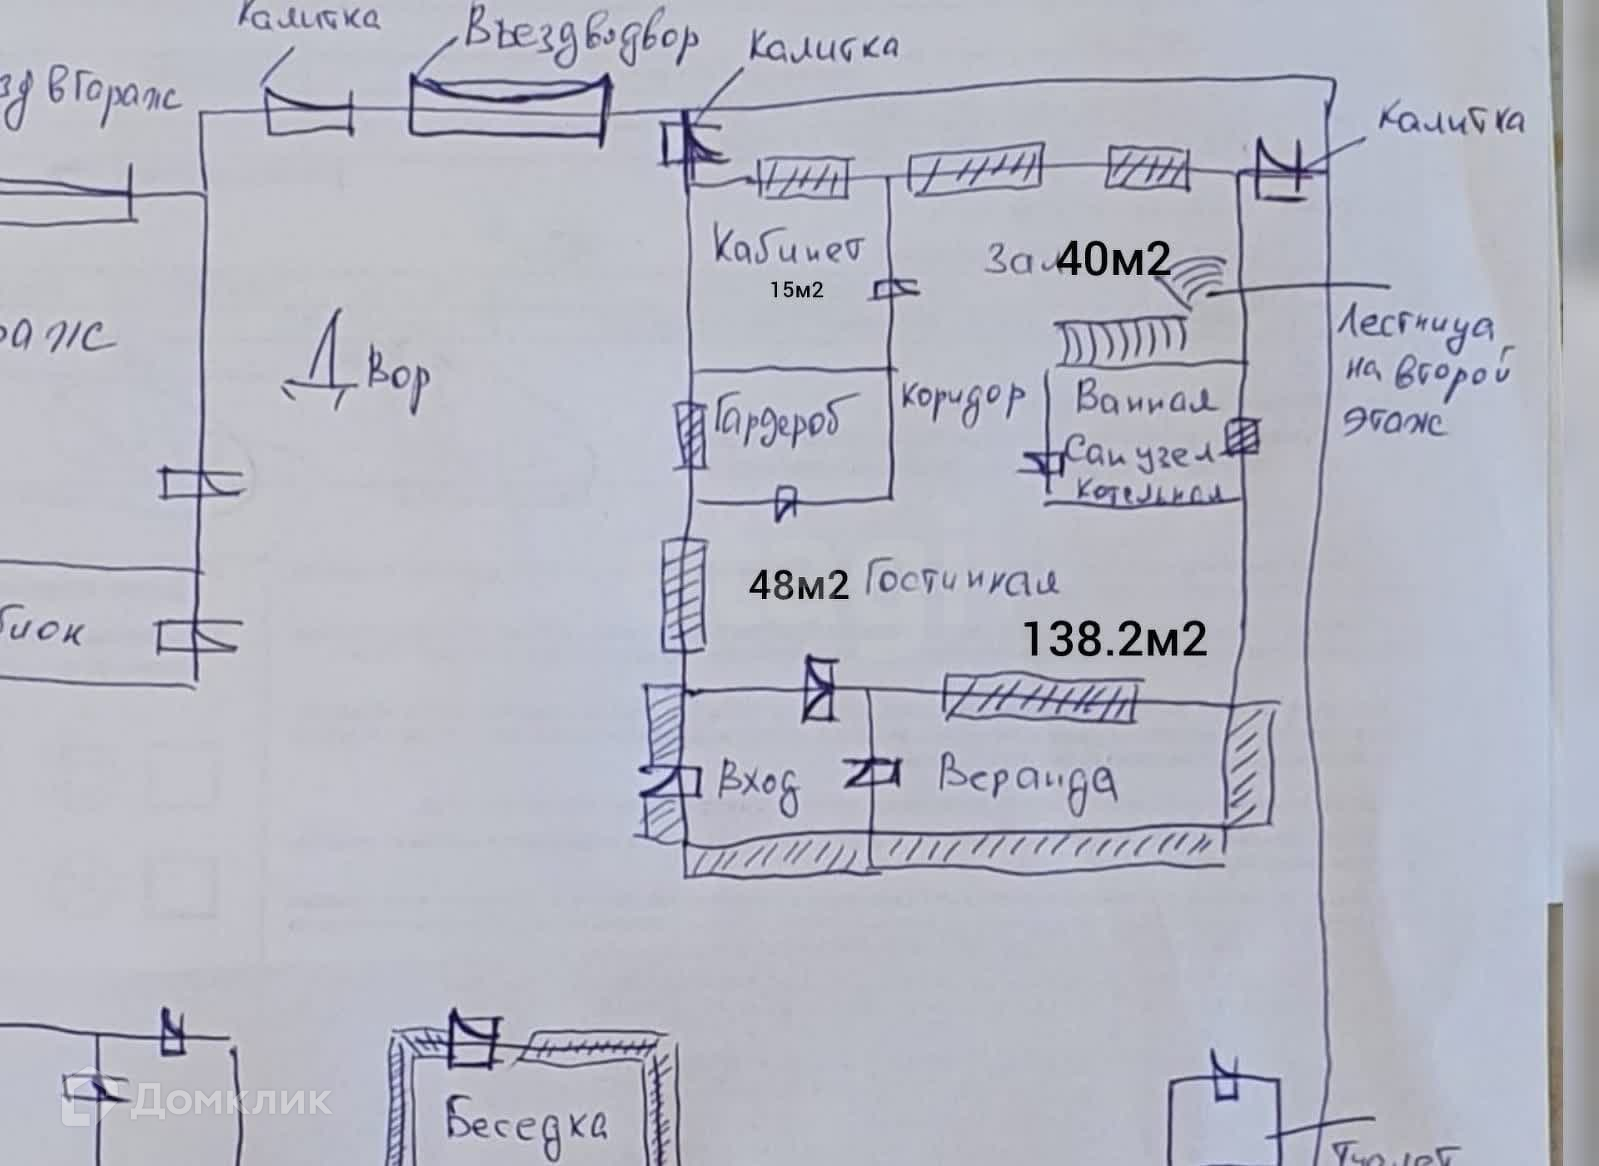 Калитка
Въезд во двор
Калитка
зд в гараж
Калитка
Кабинет
15м2
Зал
40м2
раж
Двор
Лестница
на второй
этаж
Гардероб
коридор
Ванная
Санузел
Котельная
48м2 Гостинная
138.2м2
блок
Вход
Веранда
Беседка
Домклик
Туалет